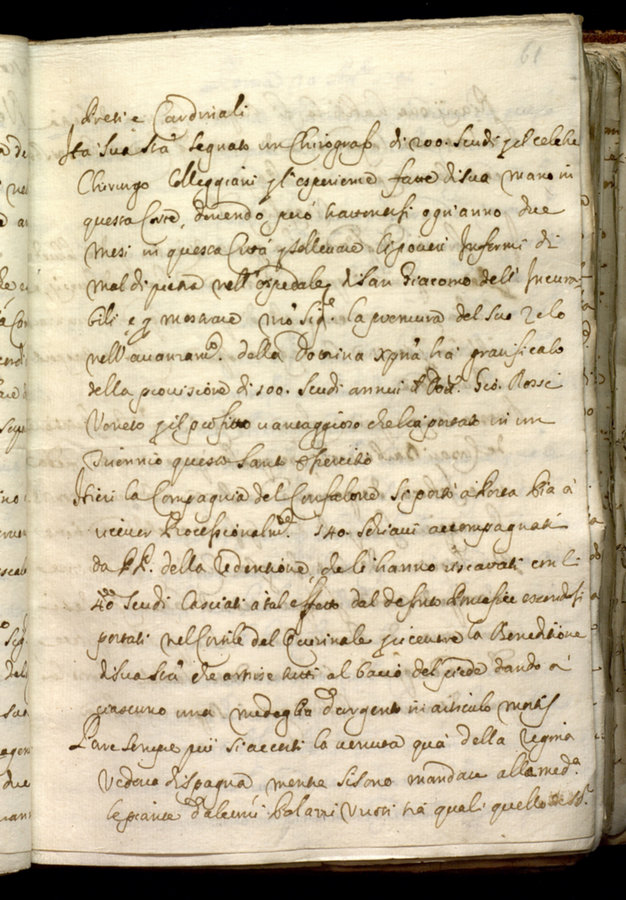 61
Preti e Cardinali
Ha Sua Stà segnato un Chirografo di 200. Scudi p el celebre
Chirurgo Colleggiani p l'esperienze fatte di sua mano in
questa Corte, dovendo però trattenersi ogni anno due
mesi in questa Città p sollevare li poveri Infermi di
mal di pietra nell'ospedale di San Giacomo dell' Incura-
bili, e p mostrare
della Dottrina xpna ha gratificato
della provisione di 100. Scudi annui il Dott. Gio. Rossi
Veneto p il profitto vantaggioso che ha portato in un
Triennio questo Santo Esercitio
Hieri la Compagnia del Confalone si portò a Porta Pia à
ricever Processionalm.e 140. Schiavi accompagnati
da PP. della Redentione, che li hanno riscavati con li
Scudi lasciati a tal effetto dal defunto essendosi
portati nel Cortile del Quirinale p ricevere la Beneditione
di Sua Stà che ammise tutti al bacio del piede dando à
ciascuno una medaglia d'argento in articulo mortis
Pare sempre più si accerti la venuta quà della Regina
Vedova di Spagna mentre si sono mandate alla med.a
le piante d'alcuni Palazzi Vuoti trà quali quello